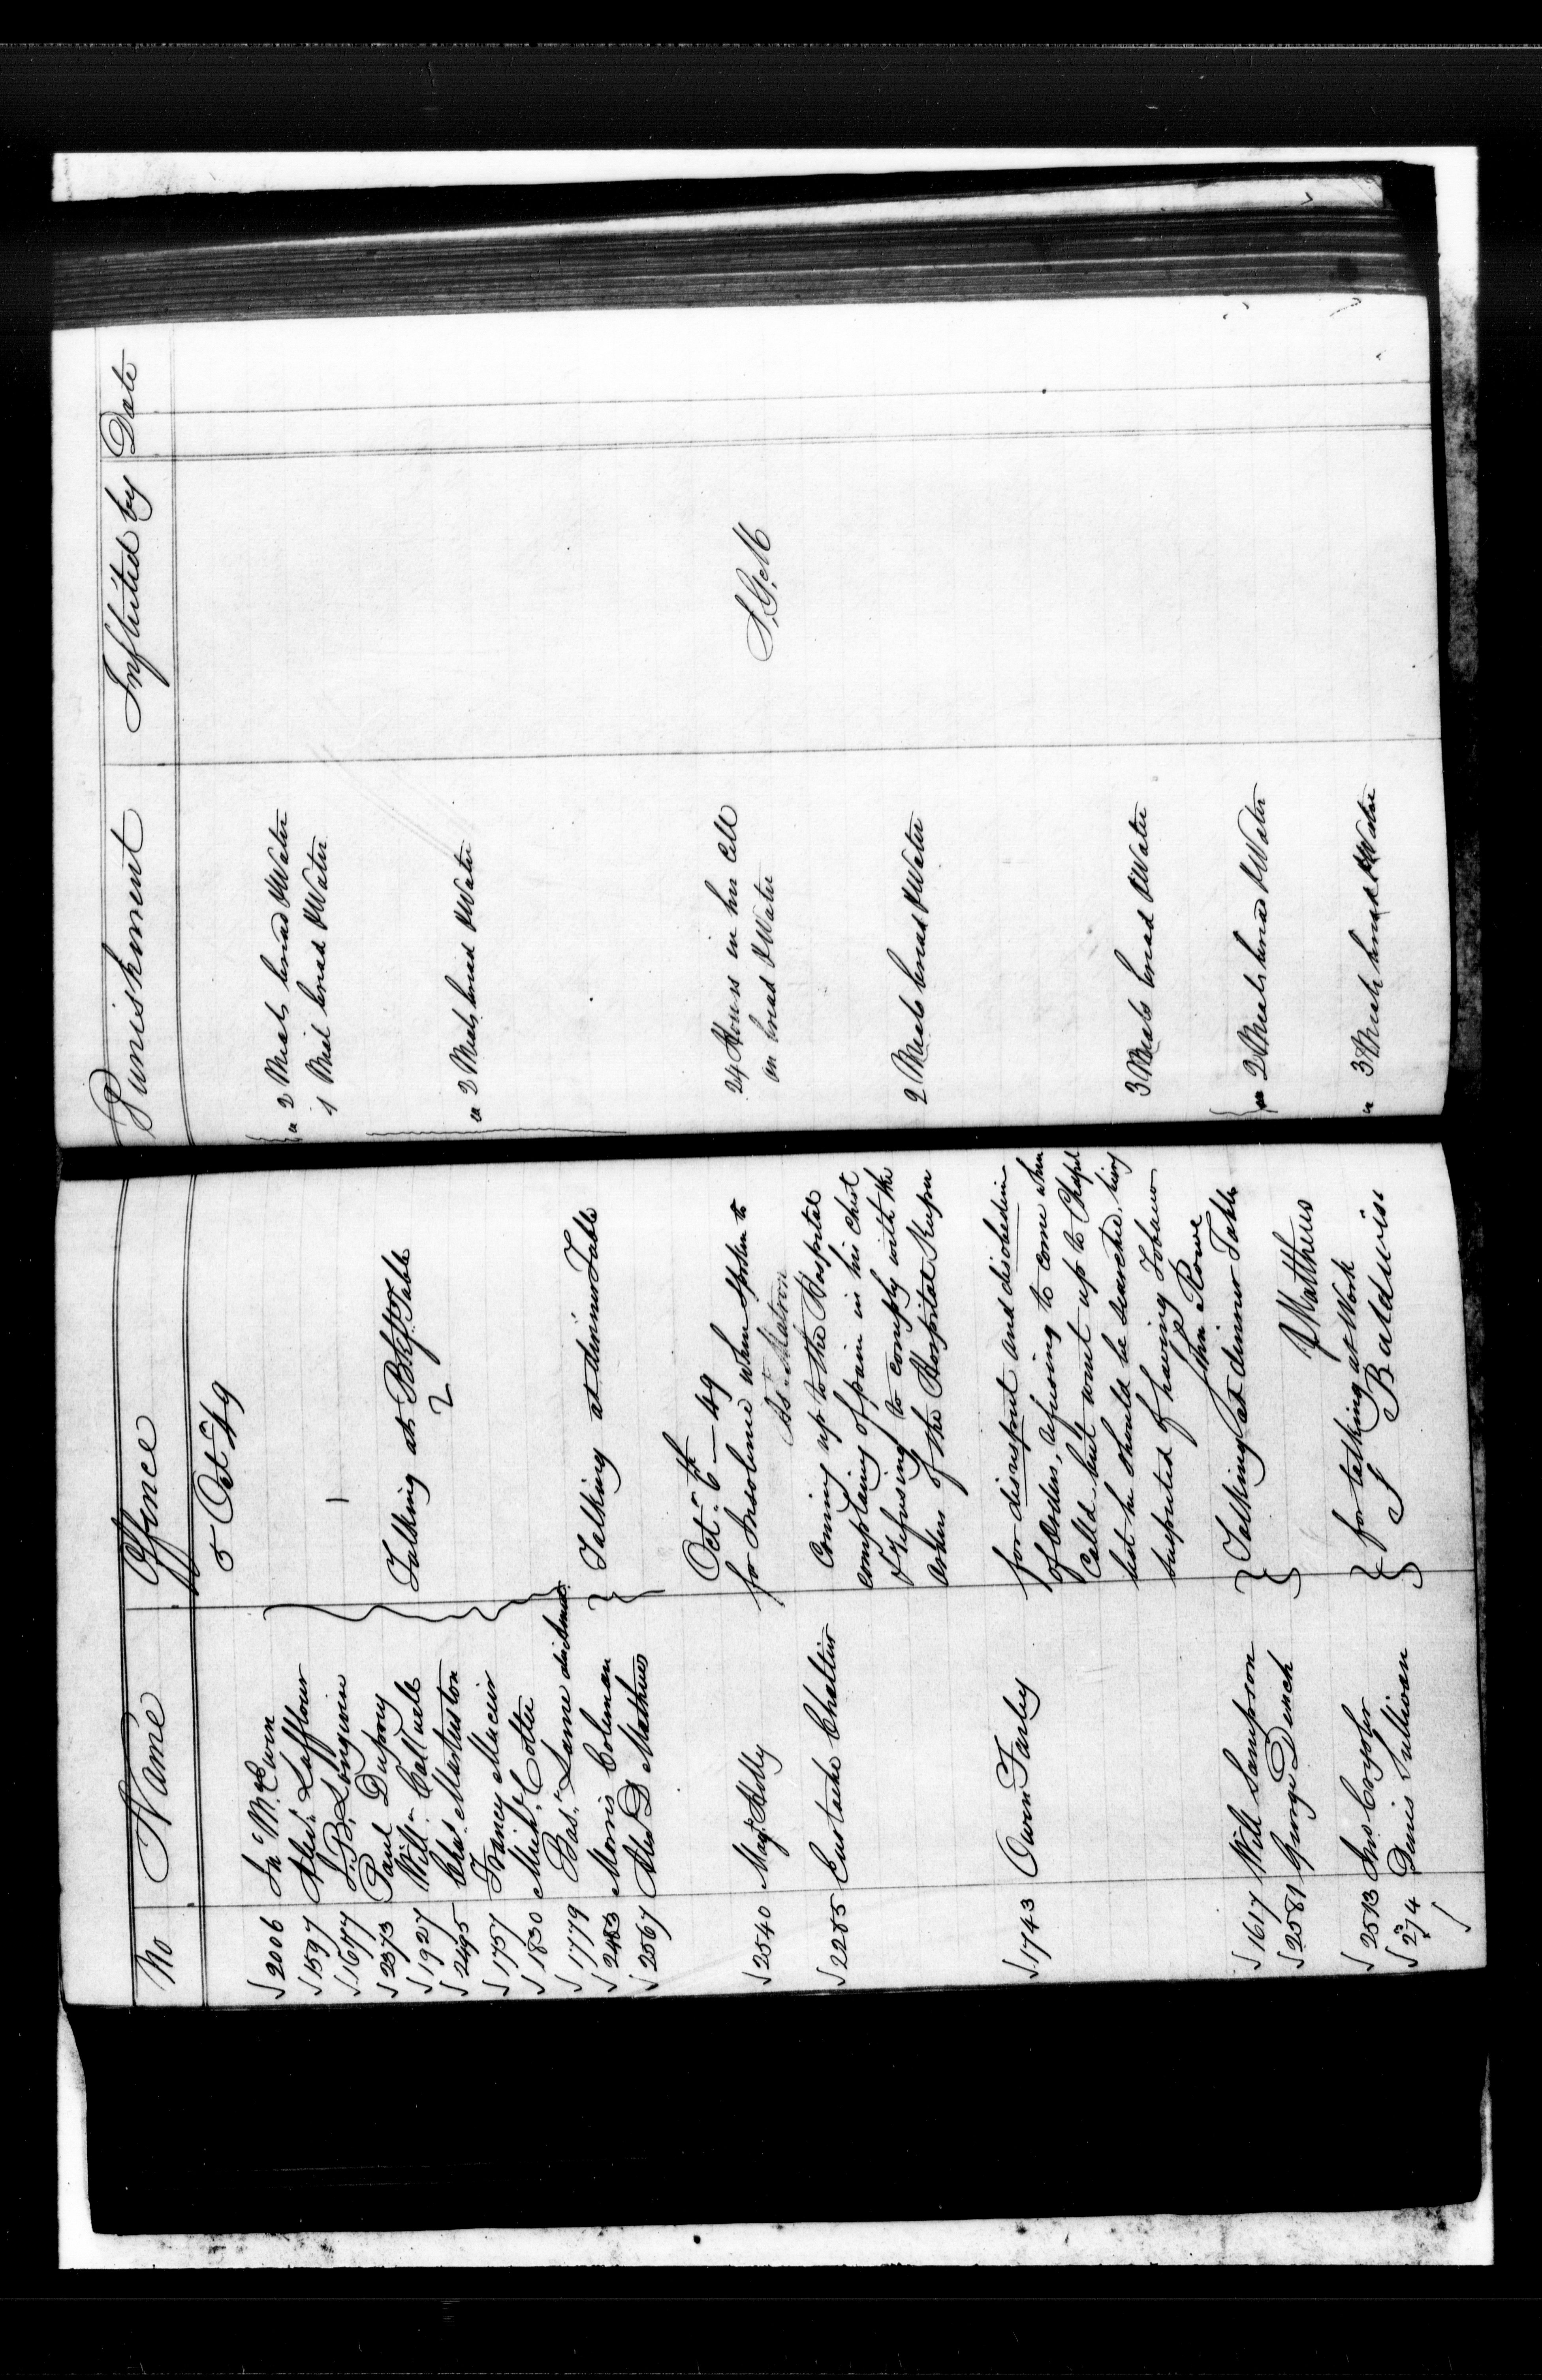 No Name Offence Punishment Inflicted by Date
5 Octr 49
2006 Jn McEwen
1597 Alexr Lafflour 1 a 2 Meals bread & Water
1677 J. B. Longuin 1 Meal bread & Water
2373 Paul Dupray
1927 Willm Caldwell Talking at Bkfst Table
2495 Chas Masterston 2
1757 Francy Mucier a 2 Meals bread & Water
1830 Michl Cotter
1779 Bas. Lame
2483 Morris Coleman Talking at dinner Table
2567 Alexr D Mathews
Octr 6th — 49
2540 Magt Holly for Insolence when spoken to 24 Hours in her Cell
Ast Matron on bread & Water S. G. M
2285 Eustache Chaltier Coming up to the Hospital
complaining of pain in his Chest
& refusing to comply with the 2 Meals bread & Water
orders of the Hospital Keeper
1743 Owen Farley for disrespect and disobedien
of Orders, refusing to come when
Calld but went up to Chapel
lest he should be searched, being
suspected of having Tobacco 3 Meals bread & Water
John Rowe
1617 Will Sampson Talking at dinner Table
2581 George Dench a 2 Meals bread & Water
J Matthews
2513 Jno Crysler for talking at Work a 3 Meals bread & Water
274 Denis Sullivan J Baldwin